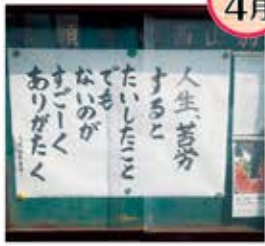 4月
人生、苦労
すると
たいしたこと
でも
ないのが
すごーく
ありがたく